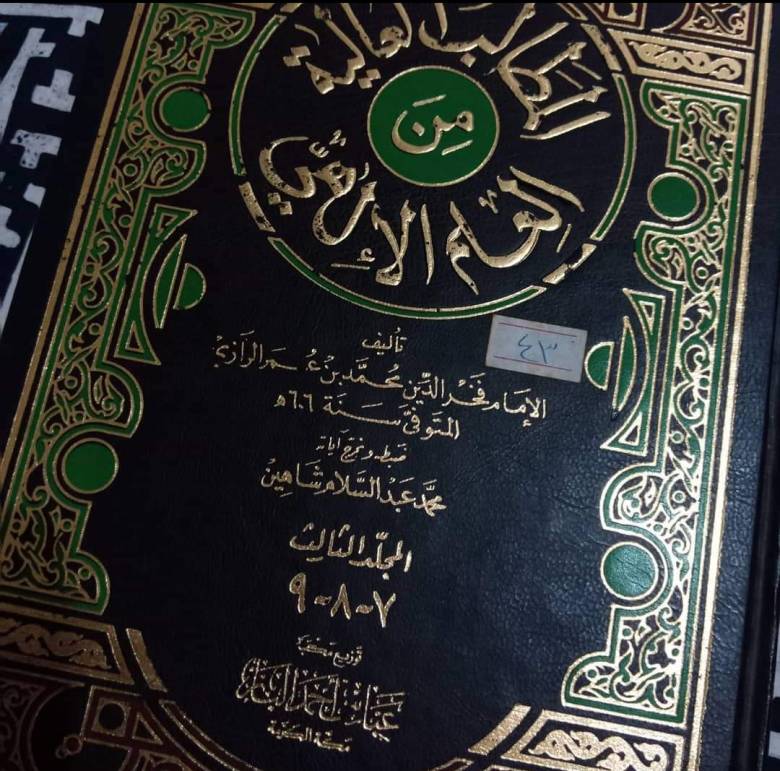 المطالب العالية
من
العلم الإلهي
تأليف
الإمام فخر الدين محمد بن عمر الرازي
المتوفى سنة ٦٠٦ هـ
٤٣
ضبطه وخرج آياته
محمد عبد السلام شاهين
المجلد الثالث
٧-٨-٩
توزيع مكتبة
عباس أحمد الباز
مكة المكرمة